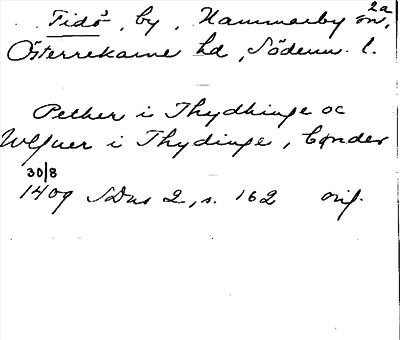 Tidö, by, Hammarby sn, 2a
Österrekarne hd, Söderm. l.
Pether i Thydhinge oc
Ulfuer i Thydinge, bønder
30/8
1409 SDns 2, s. 162 orig.